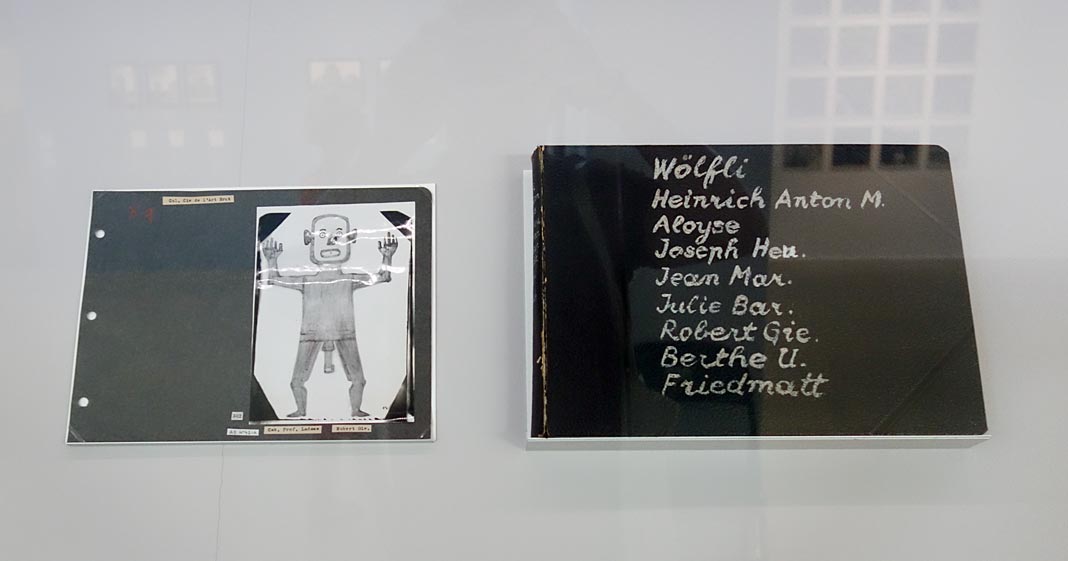 Col. Cie de l'Art Brut
Cab. Prof. Ladame
Robert Gie.
Wölfli
Heinrich Anton M.
Aloyse
Joseph Heu.
Jean Mar.
Julie Bar.
Robert Gie.
Berthe U.
Friedmatt